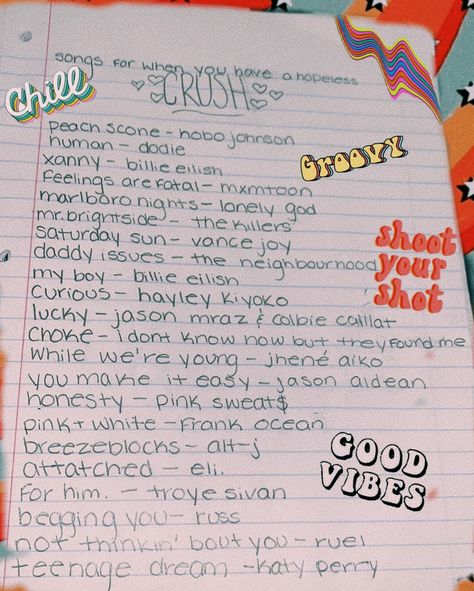 songs for when you have a hopeless
CRUSH
chill
peach scone - hobo johnson
human - dodie
Groovy
xanny - billie eilish
feelings are fatal - mxmtoon
marlboro nights - lonely god
mr. brightside - the killers
saturday sun - vance joy
shoot
your
shot
daddy issues - the neighbourhood
my boy - billie eilish
curious - hayley kiyoko
lucky - jason mraz & colbie caillat
choke - i dont know now but they found me
while we're young - jhené aiko
you make it easy - jason aldean
honesty - pink sweat$
pink + white - frank ocean
breezeblocks - alt-j
GOOD
VIBES
attatched - eli.
for him. - troye sivan
begging you - russ
not thinkin' bout you - ruel
teenage dream - katy perry